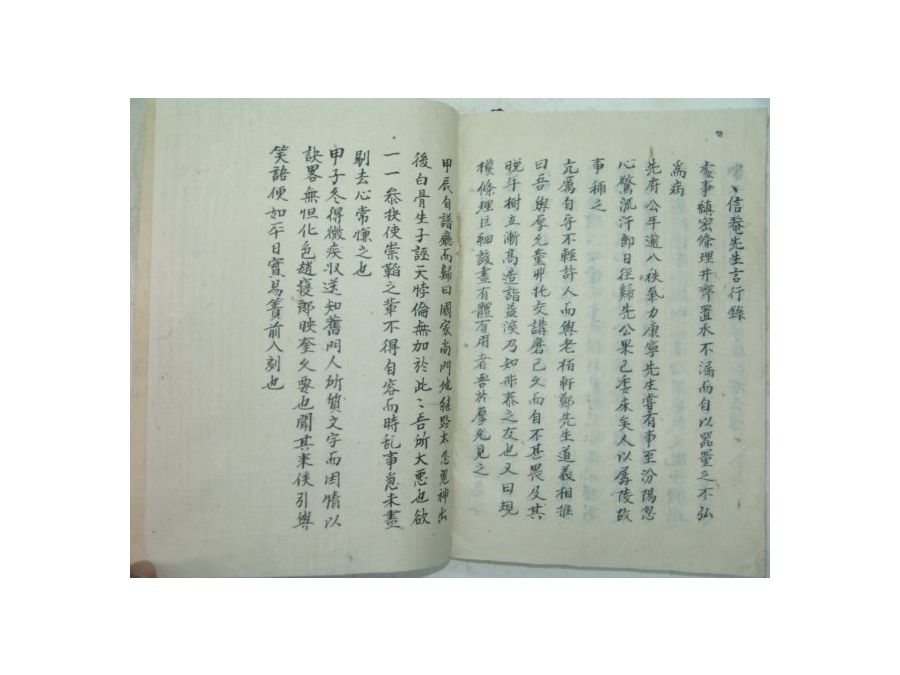 信菴先生言行錄
處事縝密條理井齊置水不漏而自以器量之不弘
爲病
先府公年逾八秩氣力康寧先生嘗有事至汾陽忽
心驚流汗卽日徑歸先公果已委床矣人以孱陵故
事稱之
亢厲自守不輕許人而與老栢軒鄭先生道義相推
曰吾與厚允量卵托交講磨已久而自不甚畏及其
晩年樹立漸高造詣益深乃知非泰之友也又曰規
模條理巨細該盡有體有用者吾於厚允見之
甲辰自譜廳而歸曰國家尙門地継路太忽鬼神出
後白骨生子誣天悖倫無加於此〻吾所大悪也欲
一一叅抉使崇韜之輩不得自容而時乱事怱未盡
剔去心常慊之也
甲子冬得微疾収送知舊門人所質文字而因情以
訣畧無怛化色趙復郎映奎久要也聞其来俟引與
笑語便如平日實易簀前八刻也